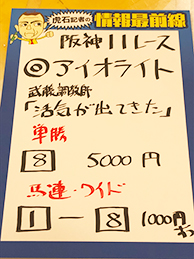 虎石記者の
情報最前線
阪神11レース
◎アイオライト
武藤調教師
「活気が出てきた」
単勝
8 5000円
馬連・ワイド
1－8 1000円